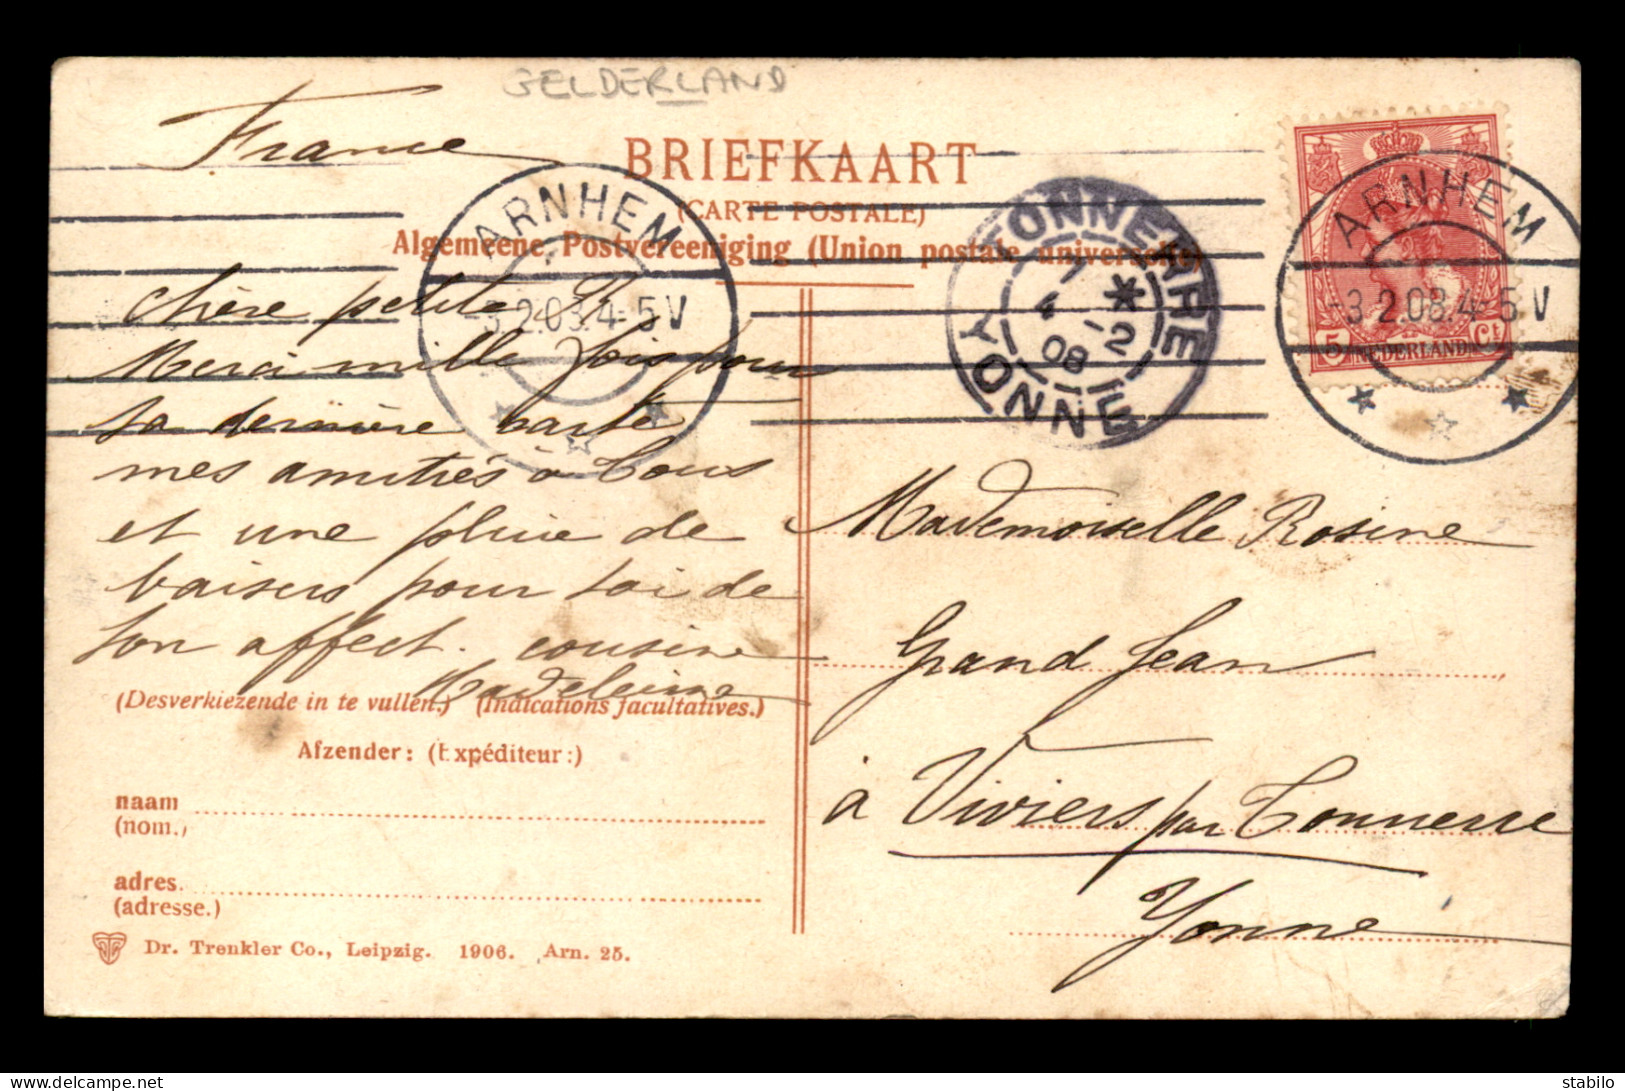 GELDERLAND
France
BRIEFKAART
(CARTE POSTALE)
Algemeene Postvereeniging (Union postale universelle)
ARNHEM
-3.2.08.4-5V
TONNERRE
7 *
4 -2
08
YONNE
ARNHEM
-3.2.08.4-5V
5 NEDERLAND Ct
chère petite
Merci mille fois pour
ta dernière carte
mes amitiés à tous
et une pluie de
baisers pour toi de
ton affect. cousine
Madeleine
(Desverkiezende in te vullen.) (Indications facultatives.)
Afzender: (Expéditeur:)
naam
(nom.)
adres.
(adresse.)
Dr. Trenkler Co., Leipzig. 1906. Arn. 25.
Mademoiselle Rosine
Grand Jean
à Viviers par Tonnerre
Yonne
stabilo